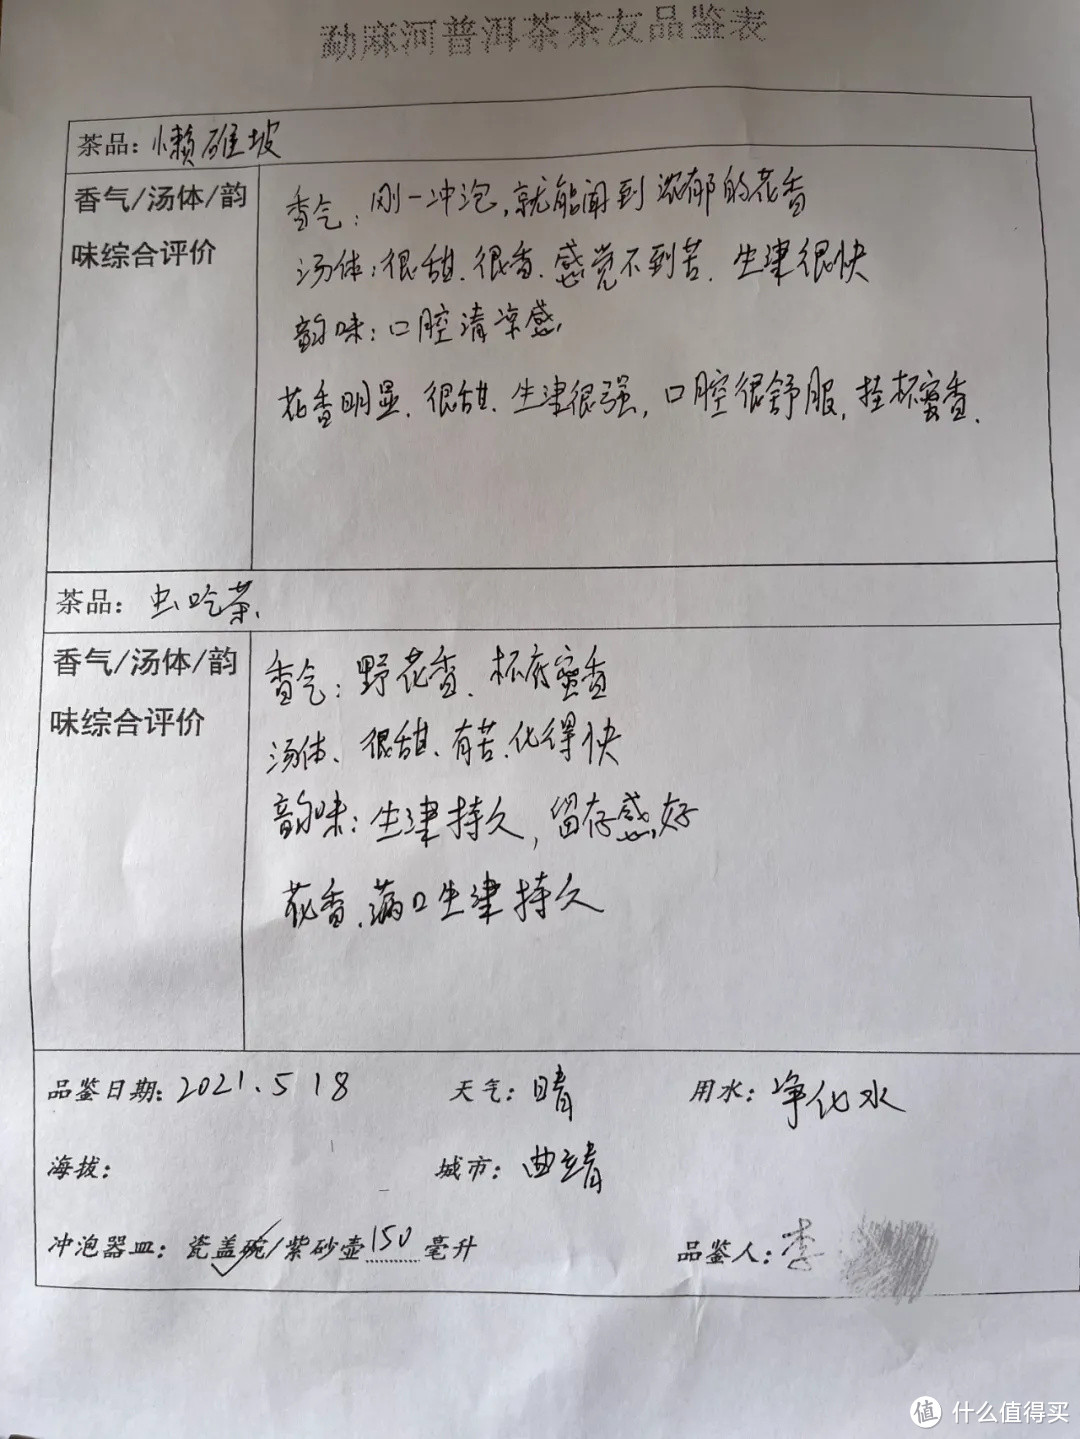 勐麻河普洱茶茶友品鉴表
茶品: 懒碓坡
香气/汤体/韵
味综合评价
香气: 刚一冲泡,就能闻到浓郁的花香
汤体: 很甜.很香.感觉不到苦.生津很快
韵味: 口腔清凉感,
花香明显.很甜.生津很强,口腔很舒服,挂杯蜜香.
茶品: 虫吃茶.
香气/汤体/韵
味综合评价
香气: 野花香.杯底蜜香
汤体、很甜、有苦.化得快
韵味: 生津持久,留存感好
花香.满口生津持久
品鉴日期: 2021.5 18 天气: 晴 用水: 净化水
海拔: 城市: 曲靖
冲泡器皿: 瓷盖碗/紫砂壶150毫升 品鉴人: 李
值 什么值得买